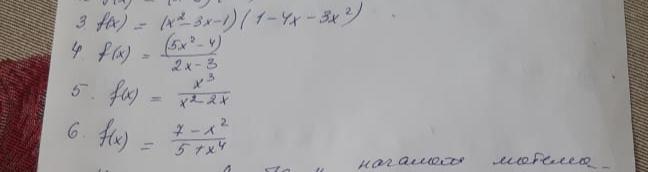 3. f(x) = (x² - 3x - 1)(1 - 4x - 3x²)
4. f(x) = (5x² - 4) / 2x - 3
5. f(x) = x³ / x² - 2x
6. f(x) = 7 - x² / 5 + x⁴